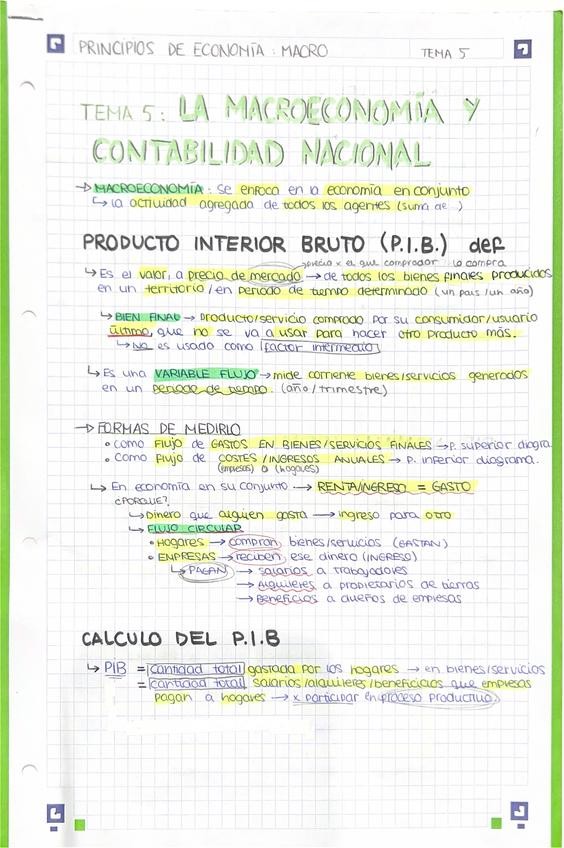 PRINCIPIOS DE ECONOMÍA: MACRO TEMA 5
TEMA 5: LA MACROECONOMÍA Y
CONTABILIDAD NACIONAL
→ MACROECONOMÍA: se enfoca en la economía en conjunto
↳ la actividad agregada de todos los agentes (suma de )
PRODUCTO INTERIOR BRUTO (P.I.B.) def
precio x el que comprador lo compra
↳ Es el valor, a precio de mercado → de todos los bienes finales producidos
en un territorio / en periodo de tiempo determinado (un país / un año)
↳ BIEN FINAL → producto/servicio comprado por su consumidor/usuario
último, que no se va a usar para hacer otro producto más.
↳ No es usado como factor intermedio
↳ Es una VARIABLE FLUJO → mide corriente bienes/servicios generados
en un periodo de tiempo. (año/trimestre)
→ FORMAS DE MEDIRLO
• Como Flujo de GASTOS EN BIENES/SERVICIOS FINALES → P. superior diagra.
• Como Flujo de COSTES/INGRESOS ANUALES → P. inferior diagrama.
(empresas) o (hogares)
↳ En economía en su conjunto → RENTA/INGRESO = GASTO
¿PORQUE?
↳ Dinero que alguien gasta → ingreso para otro
↳ FLUJO CIRCULAR
• Hogares → compran bienes/servicios (GASTAN)
• EMPRESAS → reciben ese dinero (INGRESO)
↳ PAGAN → salarios a trabajadores
→ Alquileres a propietarios de tierras
→ Beneficios a dueños de empresas
CALCULO DEL P.I.B
↳ PIB = cantidad total gastada por los hogares → en bienes/servicios
= cantidad total salarios/alquileres/beneficios que empresas
pagan a hogares → x participar en proceso productivo